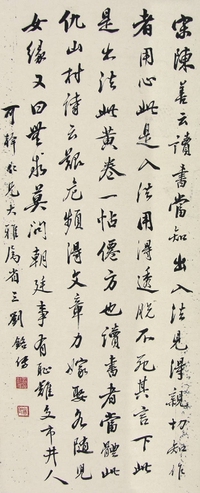 宋陳善云讀書當知出入法見得親切知作
者用心此是入法用得透脫不死其言下此
是出法此黃卷一帖僊方也讀書者當體此
仇山村詩云艱危頻得文章力嫁娶各隨兒
女緣又曰無求莫問朝廷事有恥難交市井人
可仁兄大雅屬省三劉銘傳